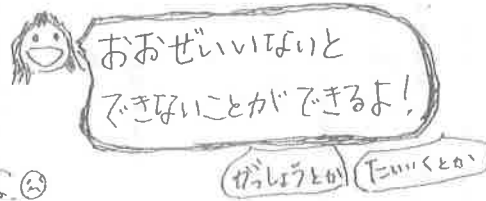 おおぜいいないと
できないことができるよ!
がっしょうとか
たいいくとか